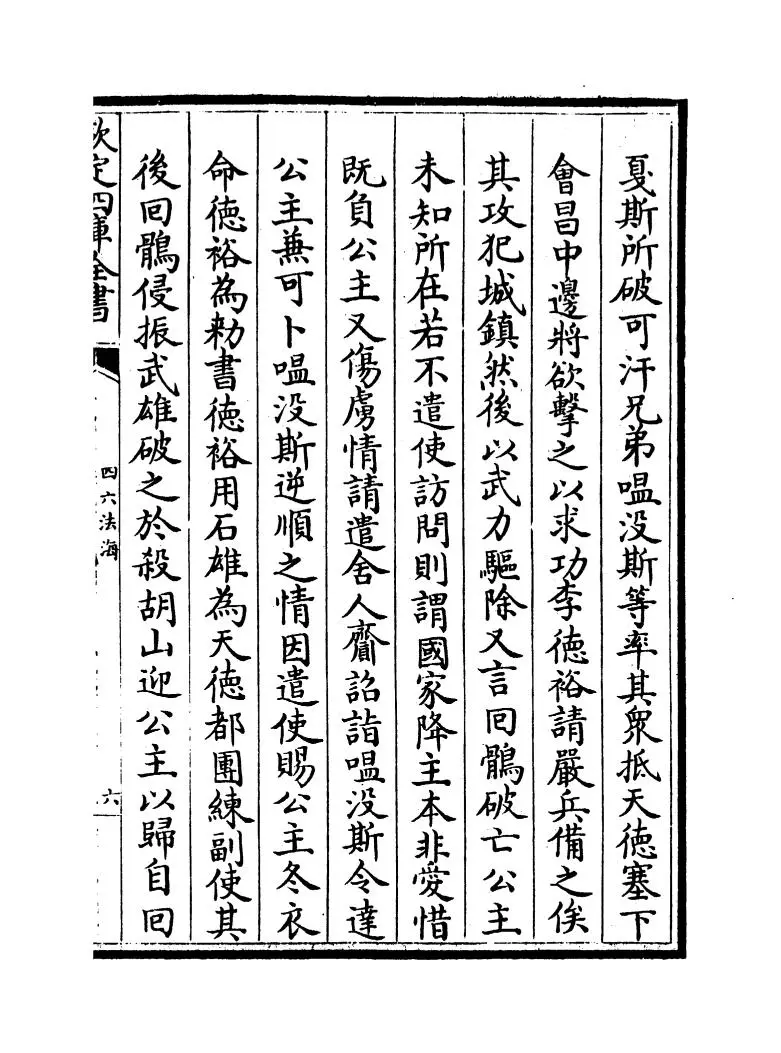 戛斯所破可汗兄弟嗢没斯等率其衆抵天徳塞下
會昌中邊將欲擊之以求功李徳裕請嚴兵備之俟
其攻犯城鎮然後以武力驅除又言回鶻破亡公主
未知所在若不遣使訪問則謂國家降主本非愛惜
既負公主又傷虜情請遣舍人齎詔詣嗢没斯令達
公主兼可卜嗢没斯逆順之情因遣使賜公主冬衣
命徳裕為勅書徳裕用石雄為天徳都團練副使其
後回鶻侵振武雄破之於殺胡山迎公主以歸自回
欽定四庫全書
四六法海
六